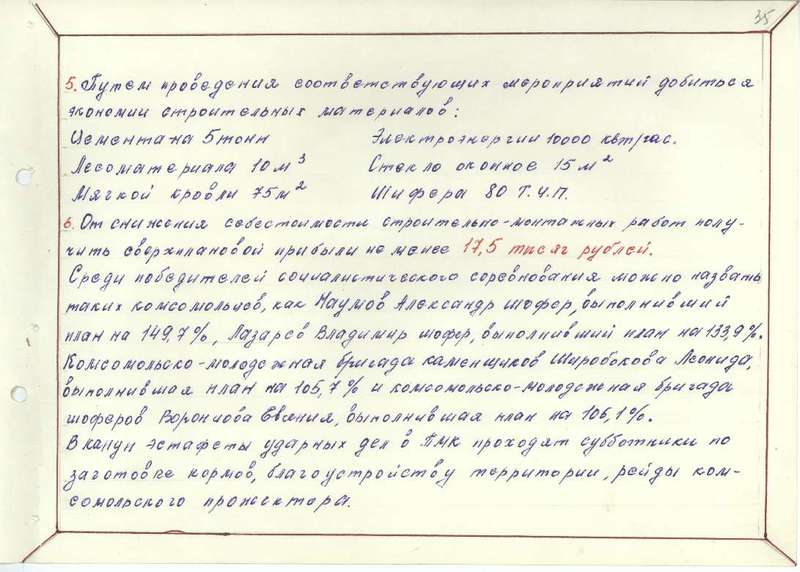 35
5. Путем проведения соответствующих мероприятий добиться
экономии строительных материалов:
Цемента на 5 тонн Электроэнергии 10000 квт/час.
Лесоматериала 10 м³ Стекло оконное 15 м²
Мягкой кровли 75 м² Шифера 80 Т.У.П.
6. От снижения себестоимости строительно-монтажных работ полу-
чить сверхплановой прибыли не менее 17,5 тысяч рублей.
Среди победителей социалистического соревнования можно назвать
таких комсомольцев, как Наумов Александр шофер, выполнивший
план на 149,7%, Лазарев Владимир шофер, выполнивший план на 133,9%.
Комсомольско-молодежная бригада каменщиков Широбокова Леонида,
выполнившая план на 105,7% и комсомольско-молодежная бригада
шоферов Воронцова Евгения, выполнившая план на 106,1%.
В канун эстафеты ударных дел в ПМК проходят субботники по
заготовке кормов, благоустройству территории, рейды ком-
сомольского прожектора.